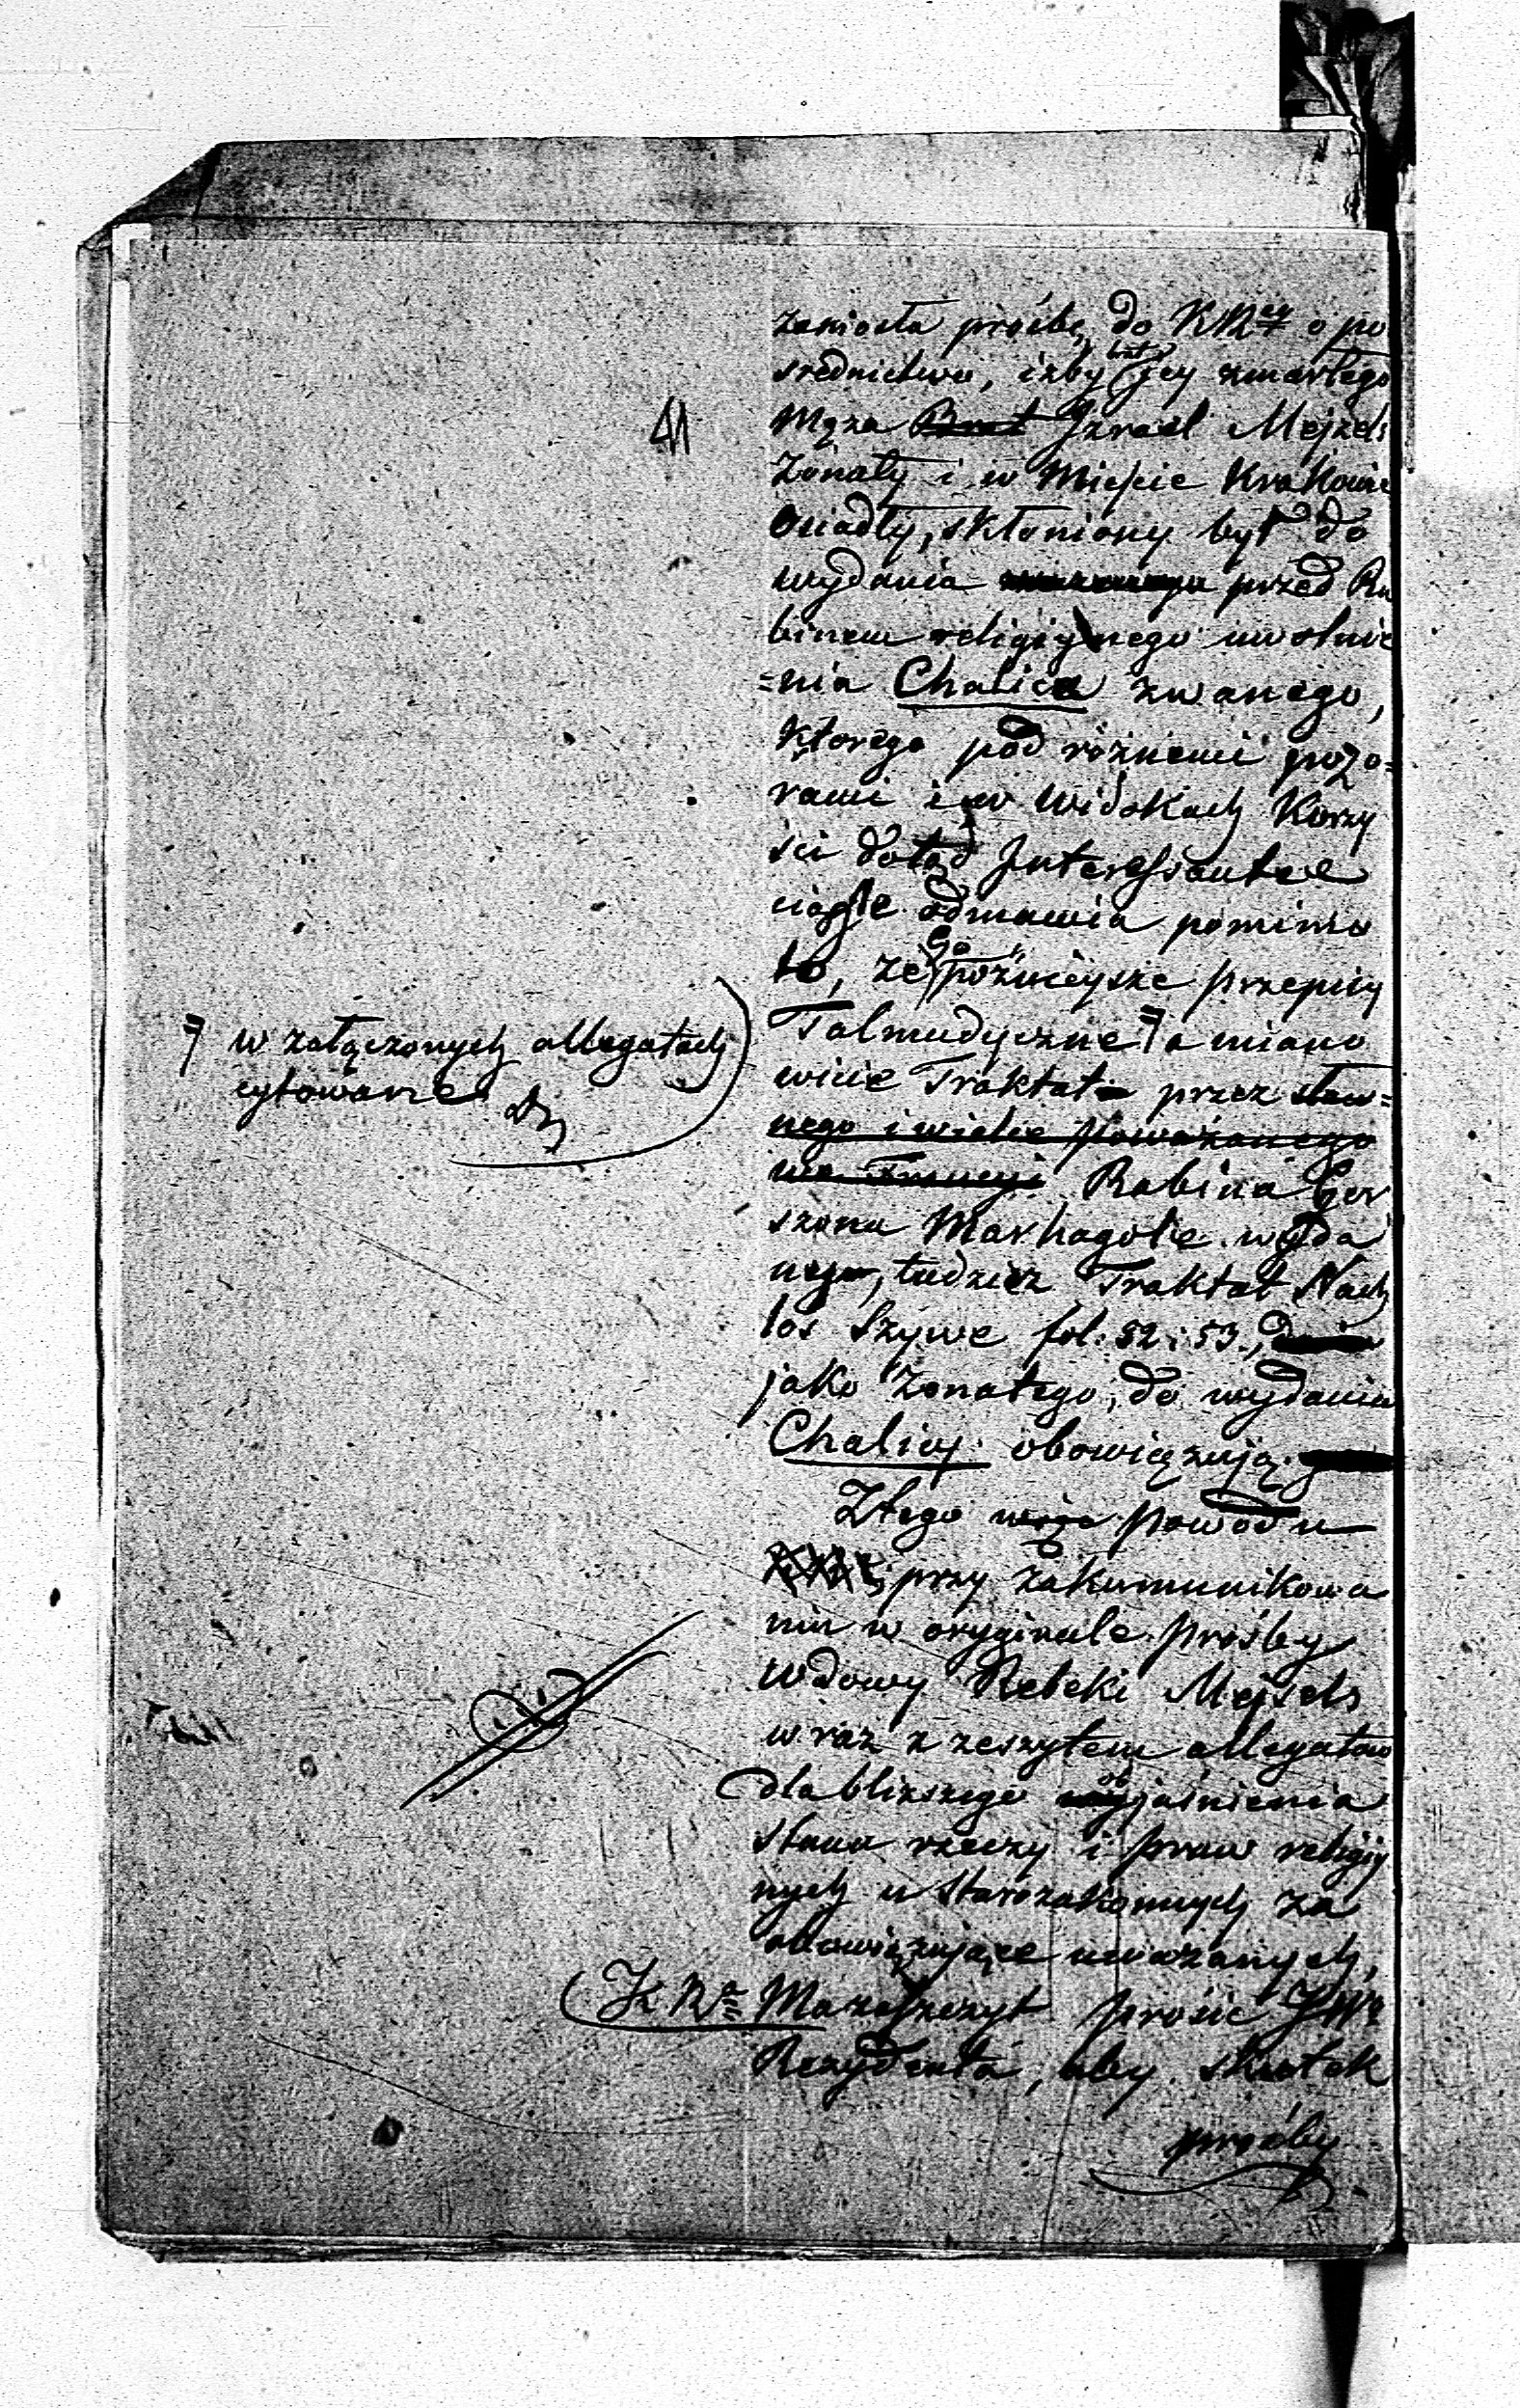 zaniosła prośbę do KRey o po
srednictwo, izby brat jey zmarłego
Męża Brat Izrael Mejzels
Żonaty i w Mieście Krakowie
Osiadły, skłoniony był do
wydania przed Ra
binem religijnego uwolnie
=nia Chalica zwanego,
którego pod różnemi pozo=
rami i w widokach Korzy
ści dotąd Interessantce
ciągle odmawia pomimo
to, że Go poźnieysze przepisy
Talmudyczne a miano
wicie Traktat przez sław=
nego i wielce poważanego
we Francyi Rabina Ger
szona Marhagole wyda
nego, tudzież Traktat Nach
los Szywe fol: 52 i 53.,
jako Żonatego, do wydania
Chalicy obowięzują
Z tego więc powodu
przy zakumunikowa
niu w oryginale prośby
wdowy Rebeki Mejzels
wraz z zeszytem allegatow
dla bliższego objaśnienia
stanu rzeczy i praw religiy
nych u Starozakonnych za
obowięzujące uważanych,
K Ra Ma zaszczyt prosić JWo
Rezydenta, aby skutek
prośby
41
w załączonych allegatach
cytowane